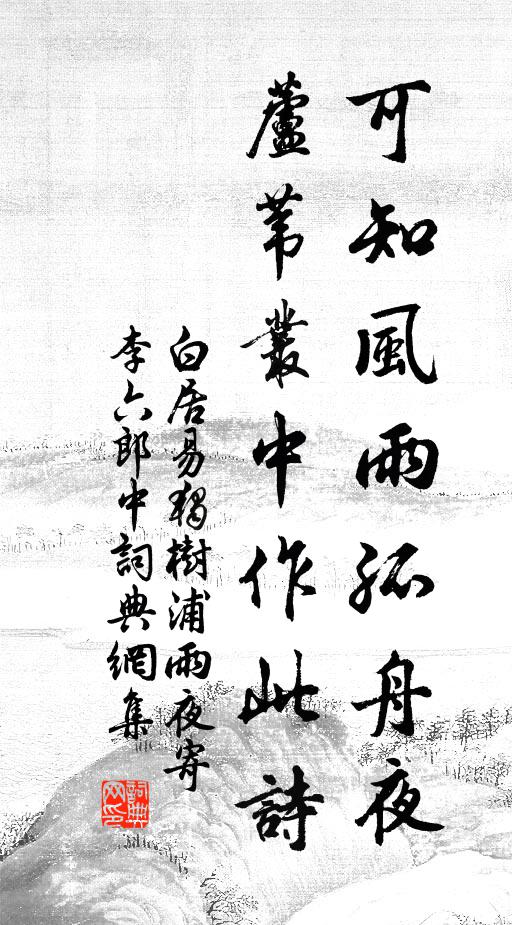 可知風雨孤舟夜
蘆葦叢中作此詩
白居易獨樹浦雨夜寄
李六郎中詞典網集
詞典網印